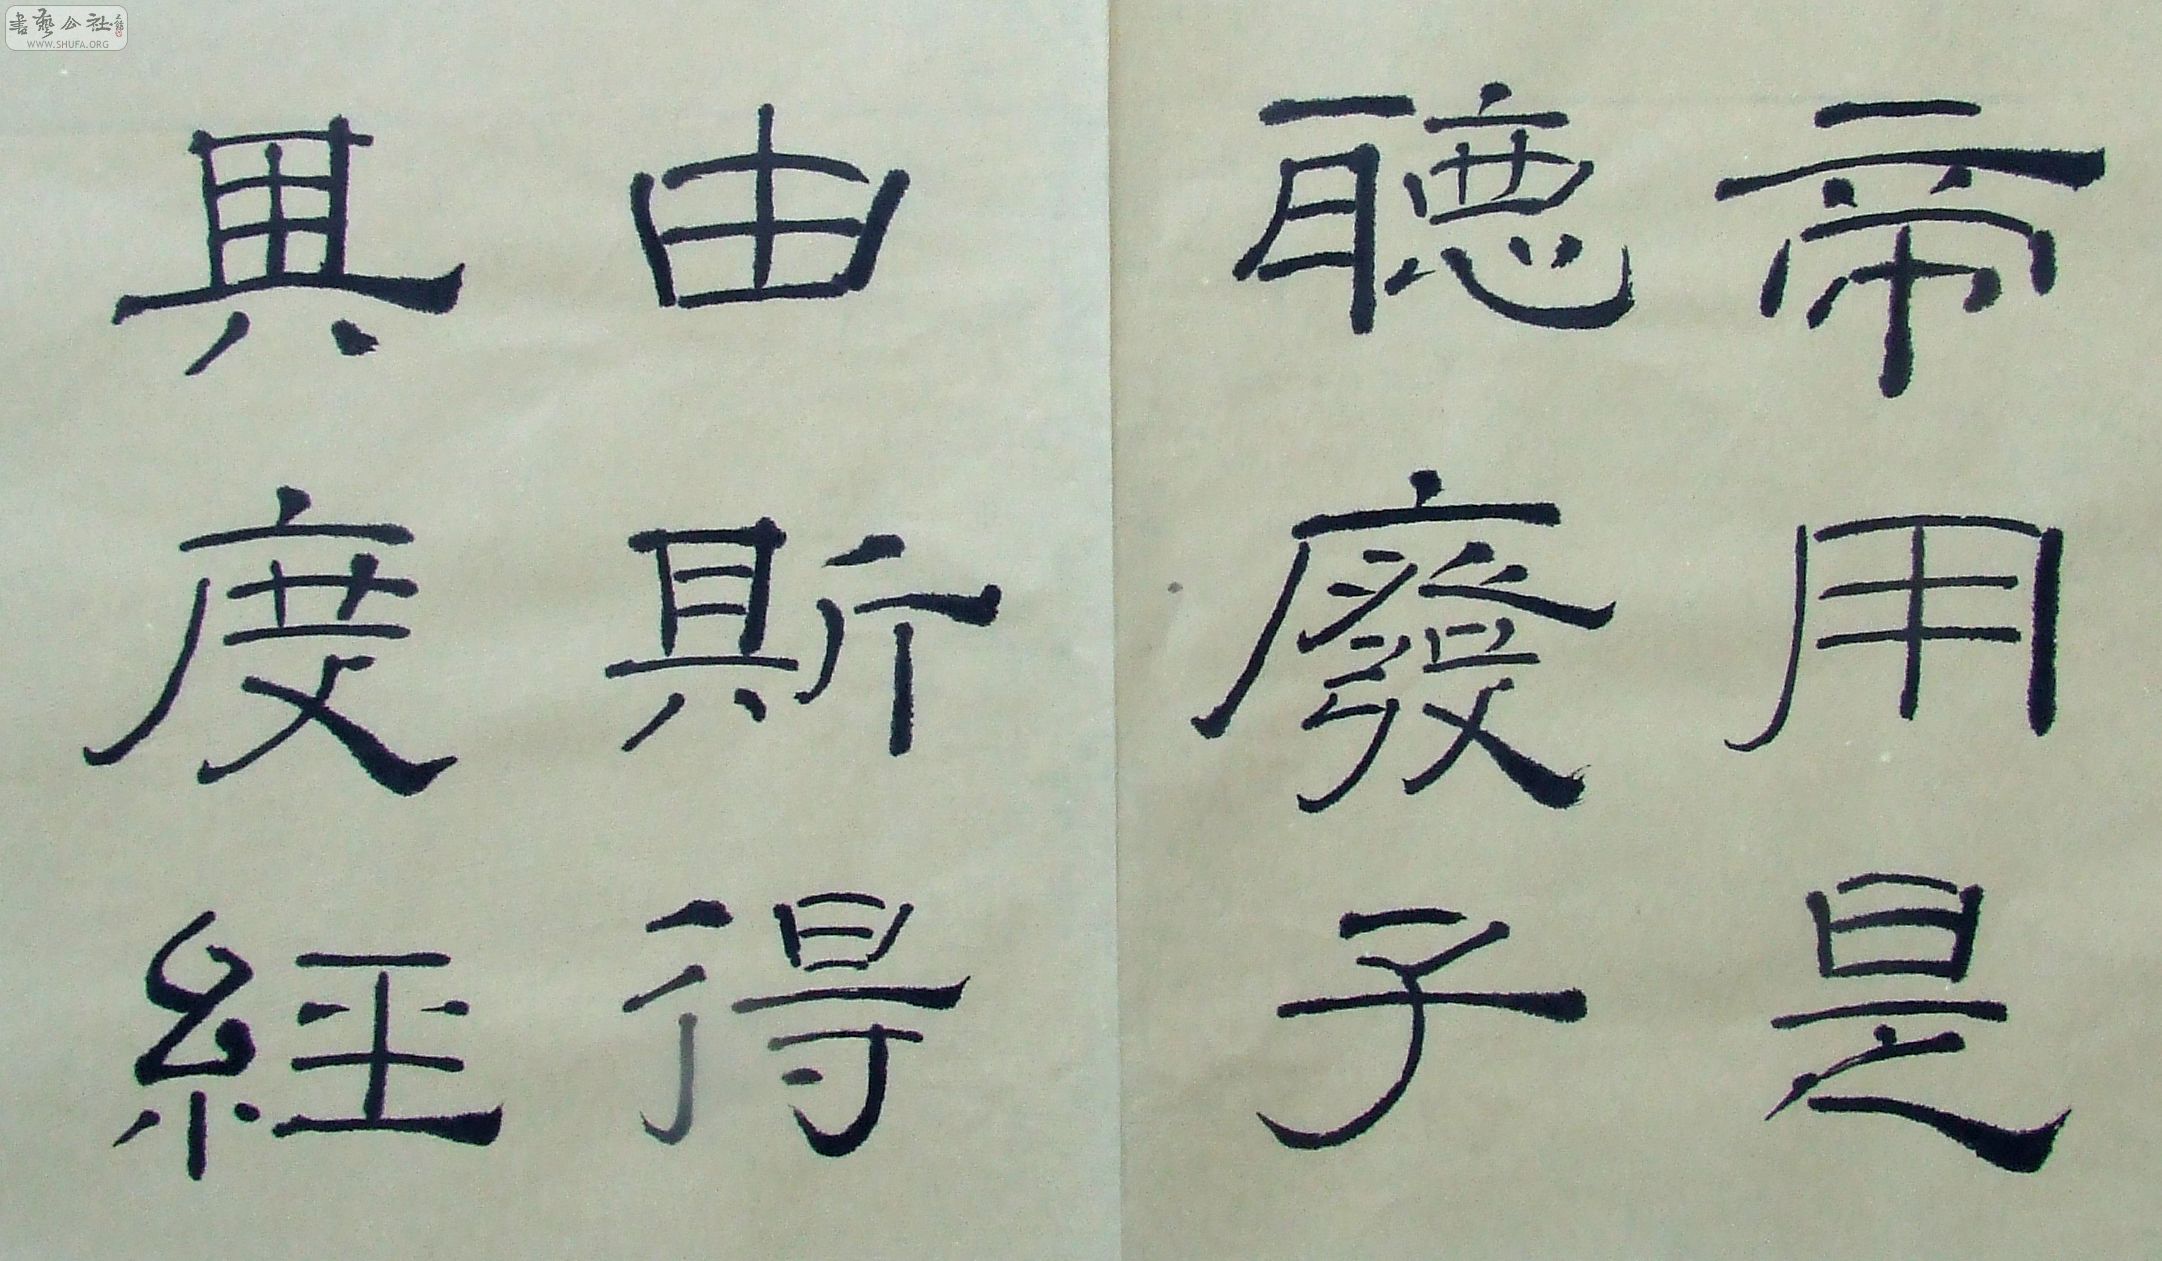 帝用是
聽廢子
由斯得
典度經
書藝公社
WWW.SHUFA.ORG